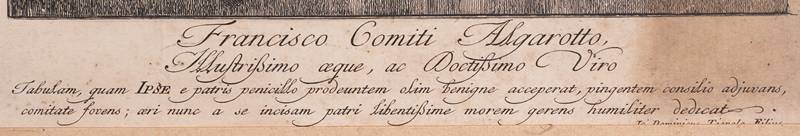 Francisco Comiti Algarotto,
Illustrißimo æque, ac Doctißimo Viro
Tabulam, quam IPSE e patris penicillo prodeuntem olim benigne acceperat, pingentem consilio adjuvans,
comitate fovens; æri nunc a se incisam patri libentißime morem gerens humiliter dedicat
Jo. Dominicus Tiepolo Filius